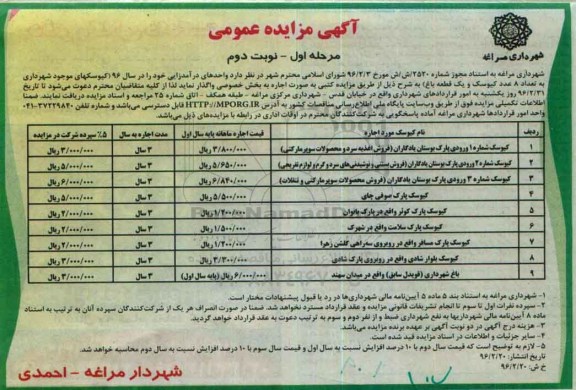 آگهی مزایده عمومی
مرحله اول - نوبت دوم
شهرداری مراغه
شهرداری مراغه به استناد مجوز شماره ۲۵۲۰/ش/ش مورخ ۹۶/۲/۳ شورای اسلامی محترم شهر در نظر دارد واحدهای درآمدزایی خود را در سال ۹۶ (کیوسکهای موجود شهرداری
به تعداد ۸ عدد کیوسک و یک قطعه باغ) به شرح ذیل از طریق مزایده کتبی به صورت اجاره به بخش خصوصی واگذار نماید لذا از کلیه متقاضیان محترم دعوت می‌شود تا تاریخ
۹۶/۲/۳۱ روز یکشنبه به امور قراردادهای شهرداری واقع در خیابان قدس - شهرداری مرکزی مراغه - طبقه همکف - اتاق شماره ۲۵ مراجعه و اسناد مزایده دریافت نمایند. ضمنا
اطلاعات تکمیلی مزایده فوق از طریق وب‌سایت پایگاه ملی اطلاع‌رسانی مناقصات کشور به آدرس HTTP://MPORG.IR قابل دسترسی می‌باشد و شماره تلفن ۳۷۲۲۹۸۲۰-۰۴۱
واحد امور قراردادها شهرداری مراغه آماده پاسخگویی به شرکت‌کنندگان محترم در اوقات اداری در رابطه با مزایده‌های ذیل می‌باشد.
ردیف نام کیوسک مورد اجاره قیمت اجاره ماهانه پایه سال اول مدت اجاره به سال ۵٪ سپرده شرکت در مزایده
۱ کیوسک شماره ۱ ورودی پارک بوستان یادگاران (فروش اغذیه سرد و محصولات سوپرمارکتی) ۳/۸۰۰/۰۰۰ ریال ۳ سال ۳/۰۰۰/۰۰۰ ریال
۲ کیوسک شماره ۲ ورودی پارک بوستان یادگاران (فروش بستنی و نوشیدنی‌های سرد و گرم و لوازم تفریحی) ۵/۶۵۰/۰۰۰ ریال ۳ سال ۵/۰۰۰/۰۰۰ ریال
۳ کیوسک شماره ۳ ورودی پارک بوستان یادگاران (فروش محصولات سوپرمارکتی و تنقلات) ۶/۸۴۰/۰۰۰ ریال ۳ سال ۶/۰۰۰/۰۰۰ ریال
۴ کیوسک پارک صوفی چای ۵/۵۰۰/۰۰۰ ریال ۳ سال ۵/۰۰۰/۰۰۰ ریال
۵ کیوسک پارک کوثر واقع در پارک بانوان ۱/۲۰۰/۰۰۰ ریال ۳ سال ۲/۰۰۰/۰۰۰ ریال
۶ کیوسک پارک سلامت واقع در شهرک ۱/۵۰۰/۰۰۰ ریال ۳ سال ۲/۰۰۰/۰۰۰ ریال
۷ کیوسک پارک مسافر واقع در روبروی سه‌راهی گلشن زهرا ۱/۲۰۰/۰۰۰ ریال ۳ سال ۲/۰۰۰/۰۰۰ ریال
۸ کیوسک بلوار شادی واقع در روبروی پارک شادی ۳/۳۰۰/۰۰۰ ریال ۳ سال ۳/۰۰۰/۰۰۰ ریال
۹ باغ شهرداری (قویدل سابق) واقع در میدان سهند ۶/۰۰۰/۰۰۰ ریال (پایه سال اول) ۳ سال ۳/۰۰۰/۰۰۰ ریال
۱- شهرداری مراغه به استناد بند ۵ ماده ۵ آیین‌نامه مالی شهرداری‌ها در رد یا قبول پیشنهادات مختار است.
۲- سپرده نفرات اول تا سوم تا انجام تشریفات قانونی مزایده و عقد قرارداد مسترد نخواهد شد. ضمنا در صورت انصراف هر یک از شرکت‌کنندگان سپرده آنان به ترتیب به استناد
ماده ۸ آیین‌نامه مالی شهرداریها به نفع شهرداری ضبط و از نفر دوم و سوم به ترتیب دعوت به عقد قرارداد خواهد گردید.
۳- هزینه درج آگهی در دو نوبت آگهی بر عهده برنده مزایده می‌باشد.
۴- سایر جزئیات و اطلاعات در اسناد مزایده قید شده است.
۵- لازم به توضیح است که قیمت سال دوم با ۱۰ درصد افزایش نسبت به سال اول و قیمت سال سوم با ۱۰ درصد افزایش نسبت به سال دوم محاسبه خواهد شد.
تاریخ انتشار: ۹۶/۲/۲۰
خ ش: ۹۶/۲/۲۰
شهردار مراغه - احمدی